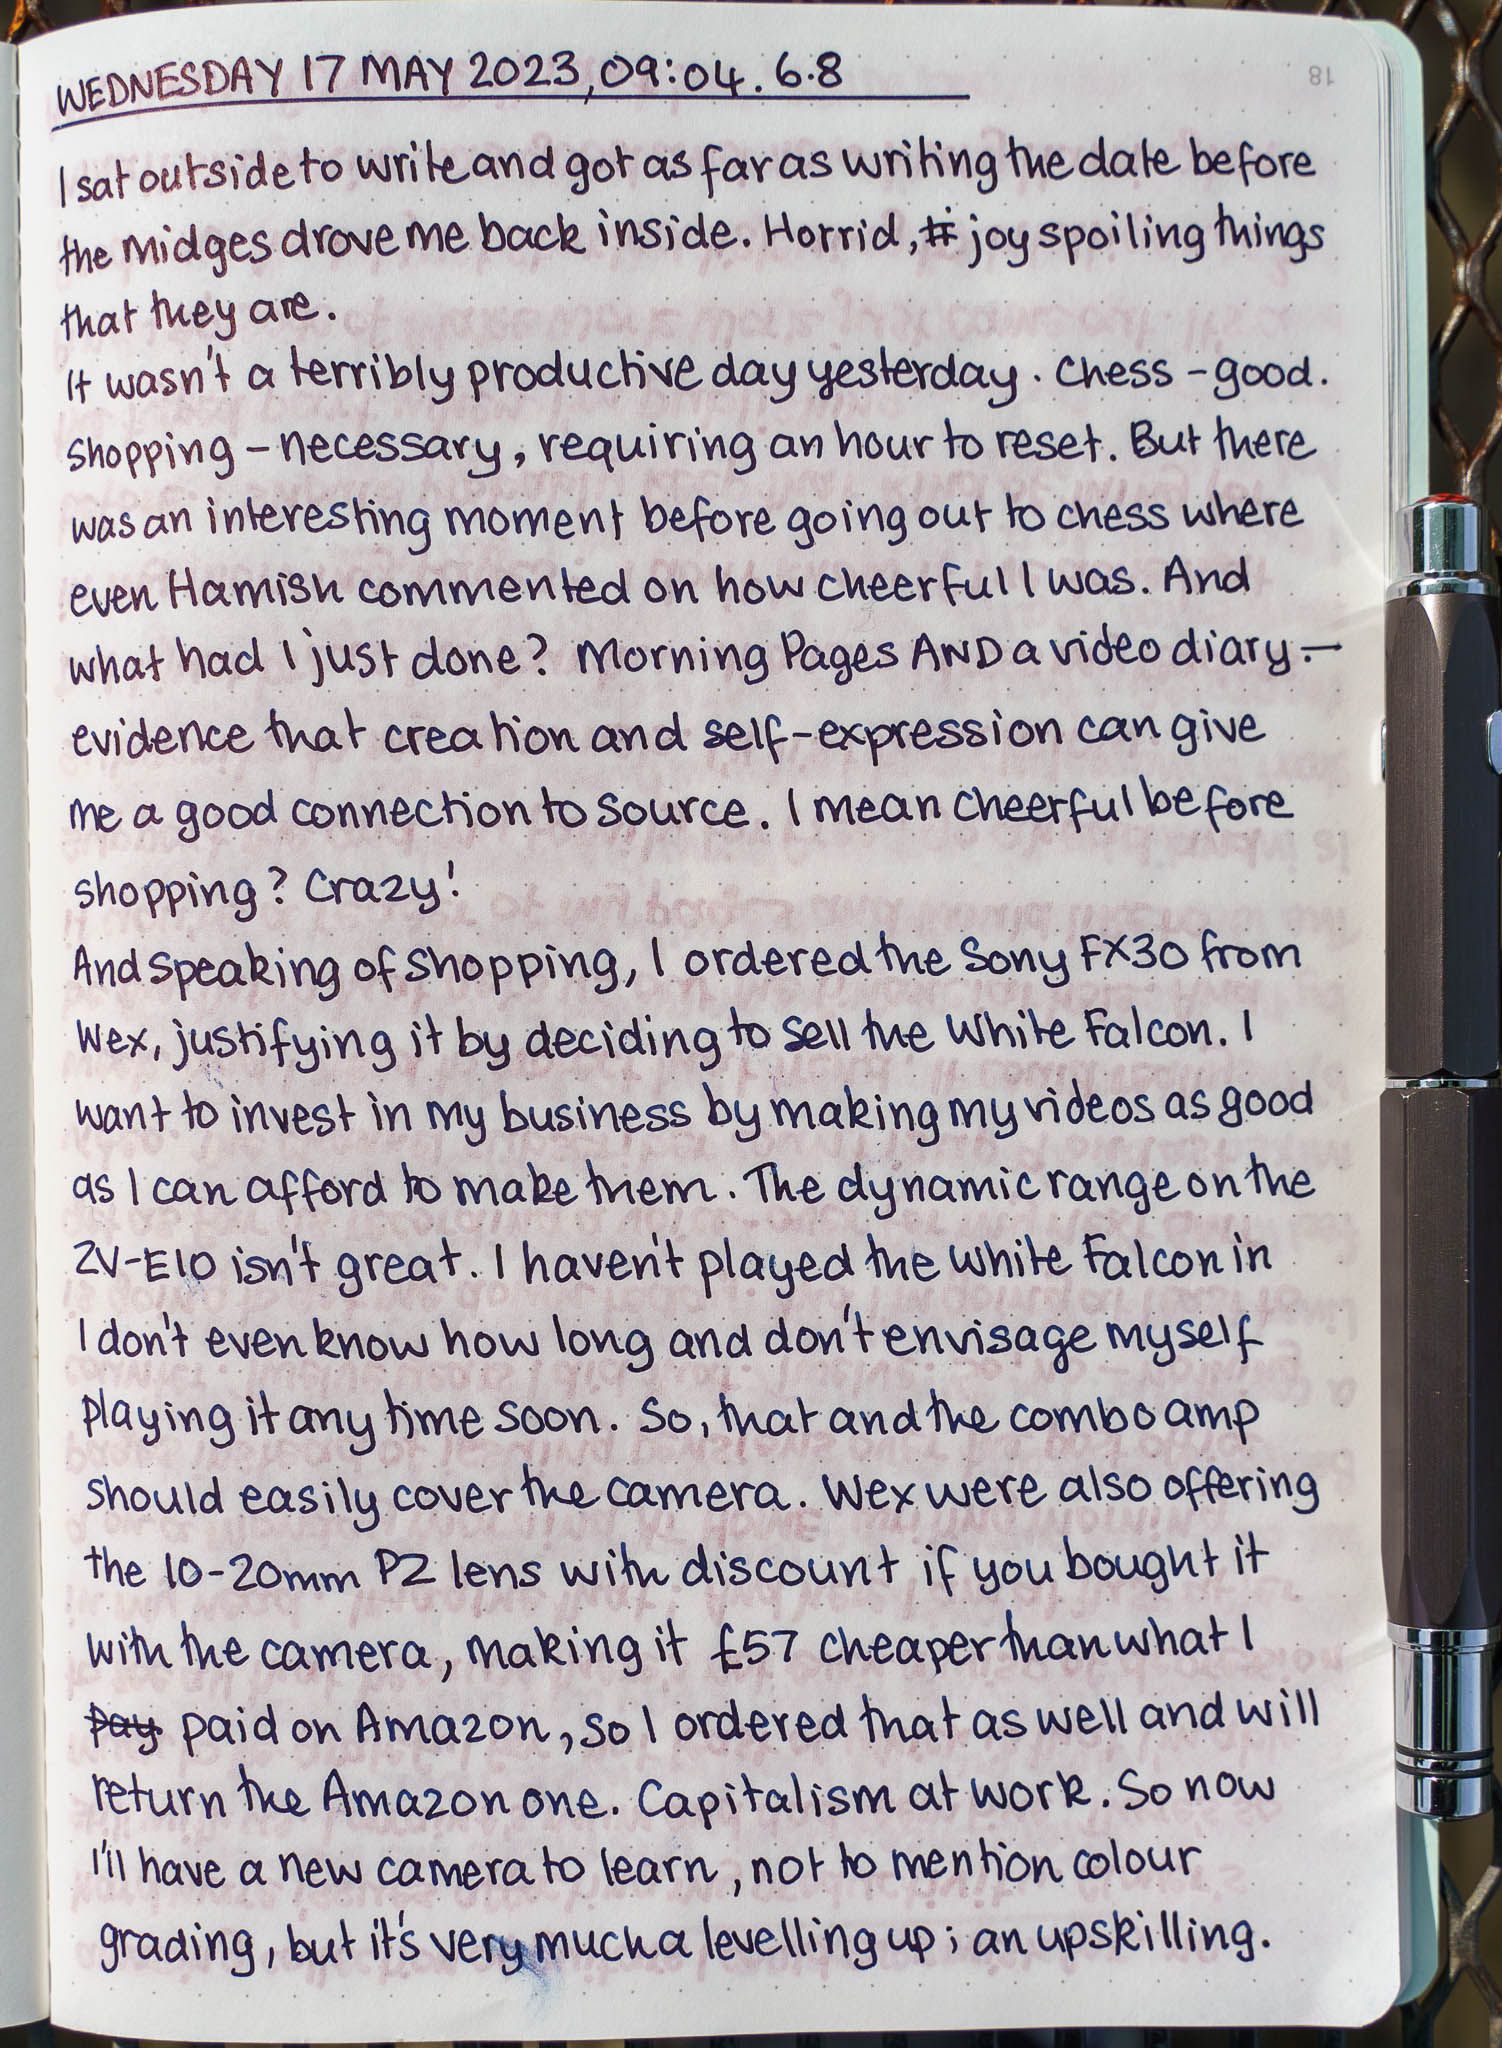 WEDNESDAY 17 MAY 2023, 09:04. 6.8
18
I sat outside to write and got as far as writing the date before
the midges drove me back inside. Horrid, joy spoiling things
that they are.
It wasn't a terribly productive day yesterday. Chess – good.
Shopping – necessary, requiring an hour to reset. But there
was an interesting moment before going out to chess where
even Hamish commented on how cheerful I was. And
what had I just done? Morning Pages AND a video diary. –
evidence that creation and self-expression can give
me a good connection to source. I mean cheerful before
shopping? Crazy!
And speaking of shopping, I ordered the Sony FX30 from
Wex, justifying it by deciding to sell the White Falcon. I
want to invest in my business by making my videos as good
as I can afford to make them. The dynamic range on the
ZV-E10 isn't great. I haven't played the White Falcon in
I don't even know how long and don't envisage myself
playing it any time soon. So, that and the combo amp
should easily cover the camera. Wex were also offering
the 10-20mm PZ lens with discount if you bought it
with the camera, making it £57 cheaper than what I
pay paid on Amazon, so I ordered that as well and will
return the Amazon one. Capitalism at work. So now
I'll have a new camera to learn, not to mention colour
grading, but it's very much a levelling up; an upskilling.